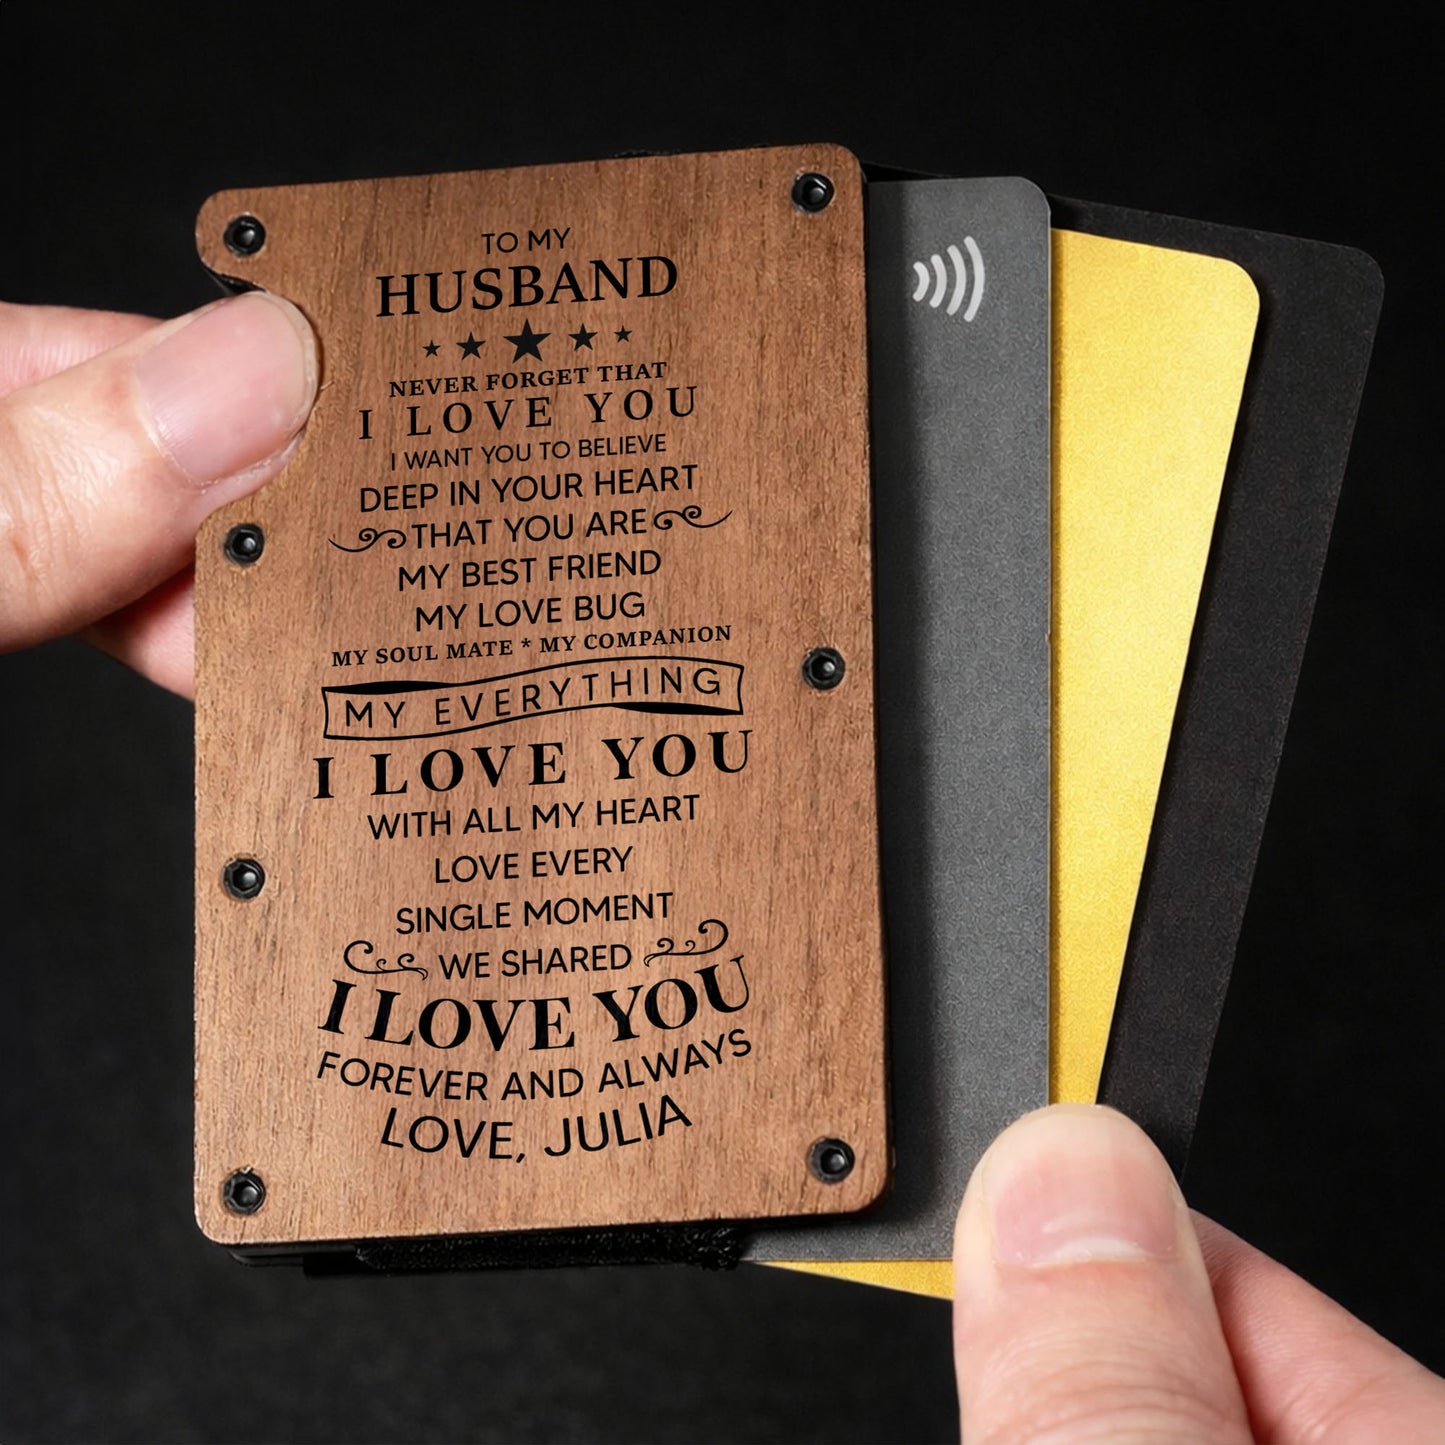 TO MY
HUSBAND
NEVER FORGET THAT
I LOVE YOU
I WANT YOU TO BELIEVE
DEEP IN YOUR HEART
THAT YOU ARE
MY BEST FRIEND
MY LOVE BUG
MY SOUL MATE * MY COMPANION
MY EVERYTHING
I LOVE YOU
WITH ALL MY HEART
LOVE EVERY
SINGLE MOMENT
WE SHARED
I LOVE YOU
FOREVER AND ALWAYS
LOVE, JULIA